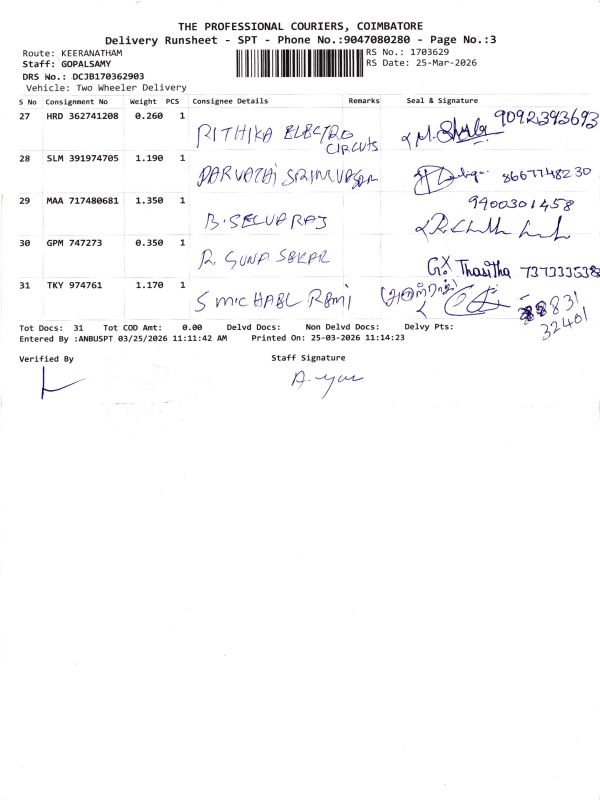 THE PROFESSIONAL COURIERS, COIMBATORE
Delivery Runsheet - SPT - Phone No.:9047080280 - Page No.:3
Route: KEERANATHAM
RS No.: 1703629
Staff: GOPALSAMY
RS Date: 25-Mar-2026
DRS No.: DCJB170362903
Vehicle: Two Wheeler Delivery
S No Consignment No Weight PCS Consignee Details Remarks Seal & Signature
27 HRD 362741208 0.260 1 RITHIKA ELECTRO CIRCUTS 9092393693
28 SLM 391974705 1.190 1 PARVATHI SRINIVASAN 8667748230
29 MAA 717480681 1.350 1 B. SELVARAJ 9900301458
30 GPM 747273 0.350 1 R. GUNA SEKAR Thasitha 737333538
31 TKY 974761 1.170 1 S MICHAEL REMI 831
32401
Tot Docs: 31 Tot COD Amt: 0.00 Delvd Docs: Non Delvd Docs: Delvy Pts:
Entered By :ANBUSPT 03/25/2026 11:11:42 AM Printed On: 25-03-2026 11:14:23
Verified By Staff Signature